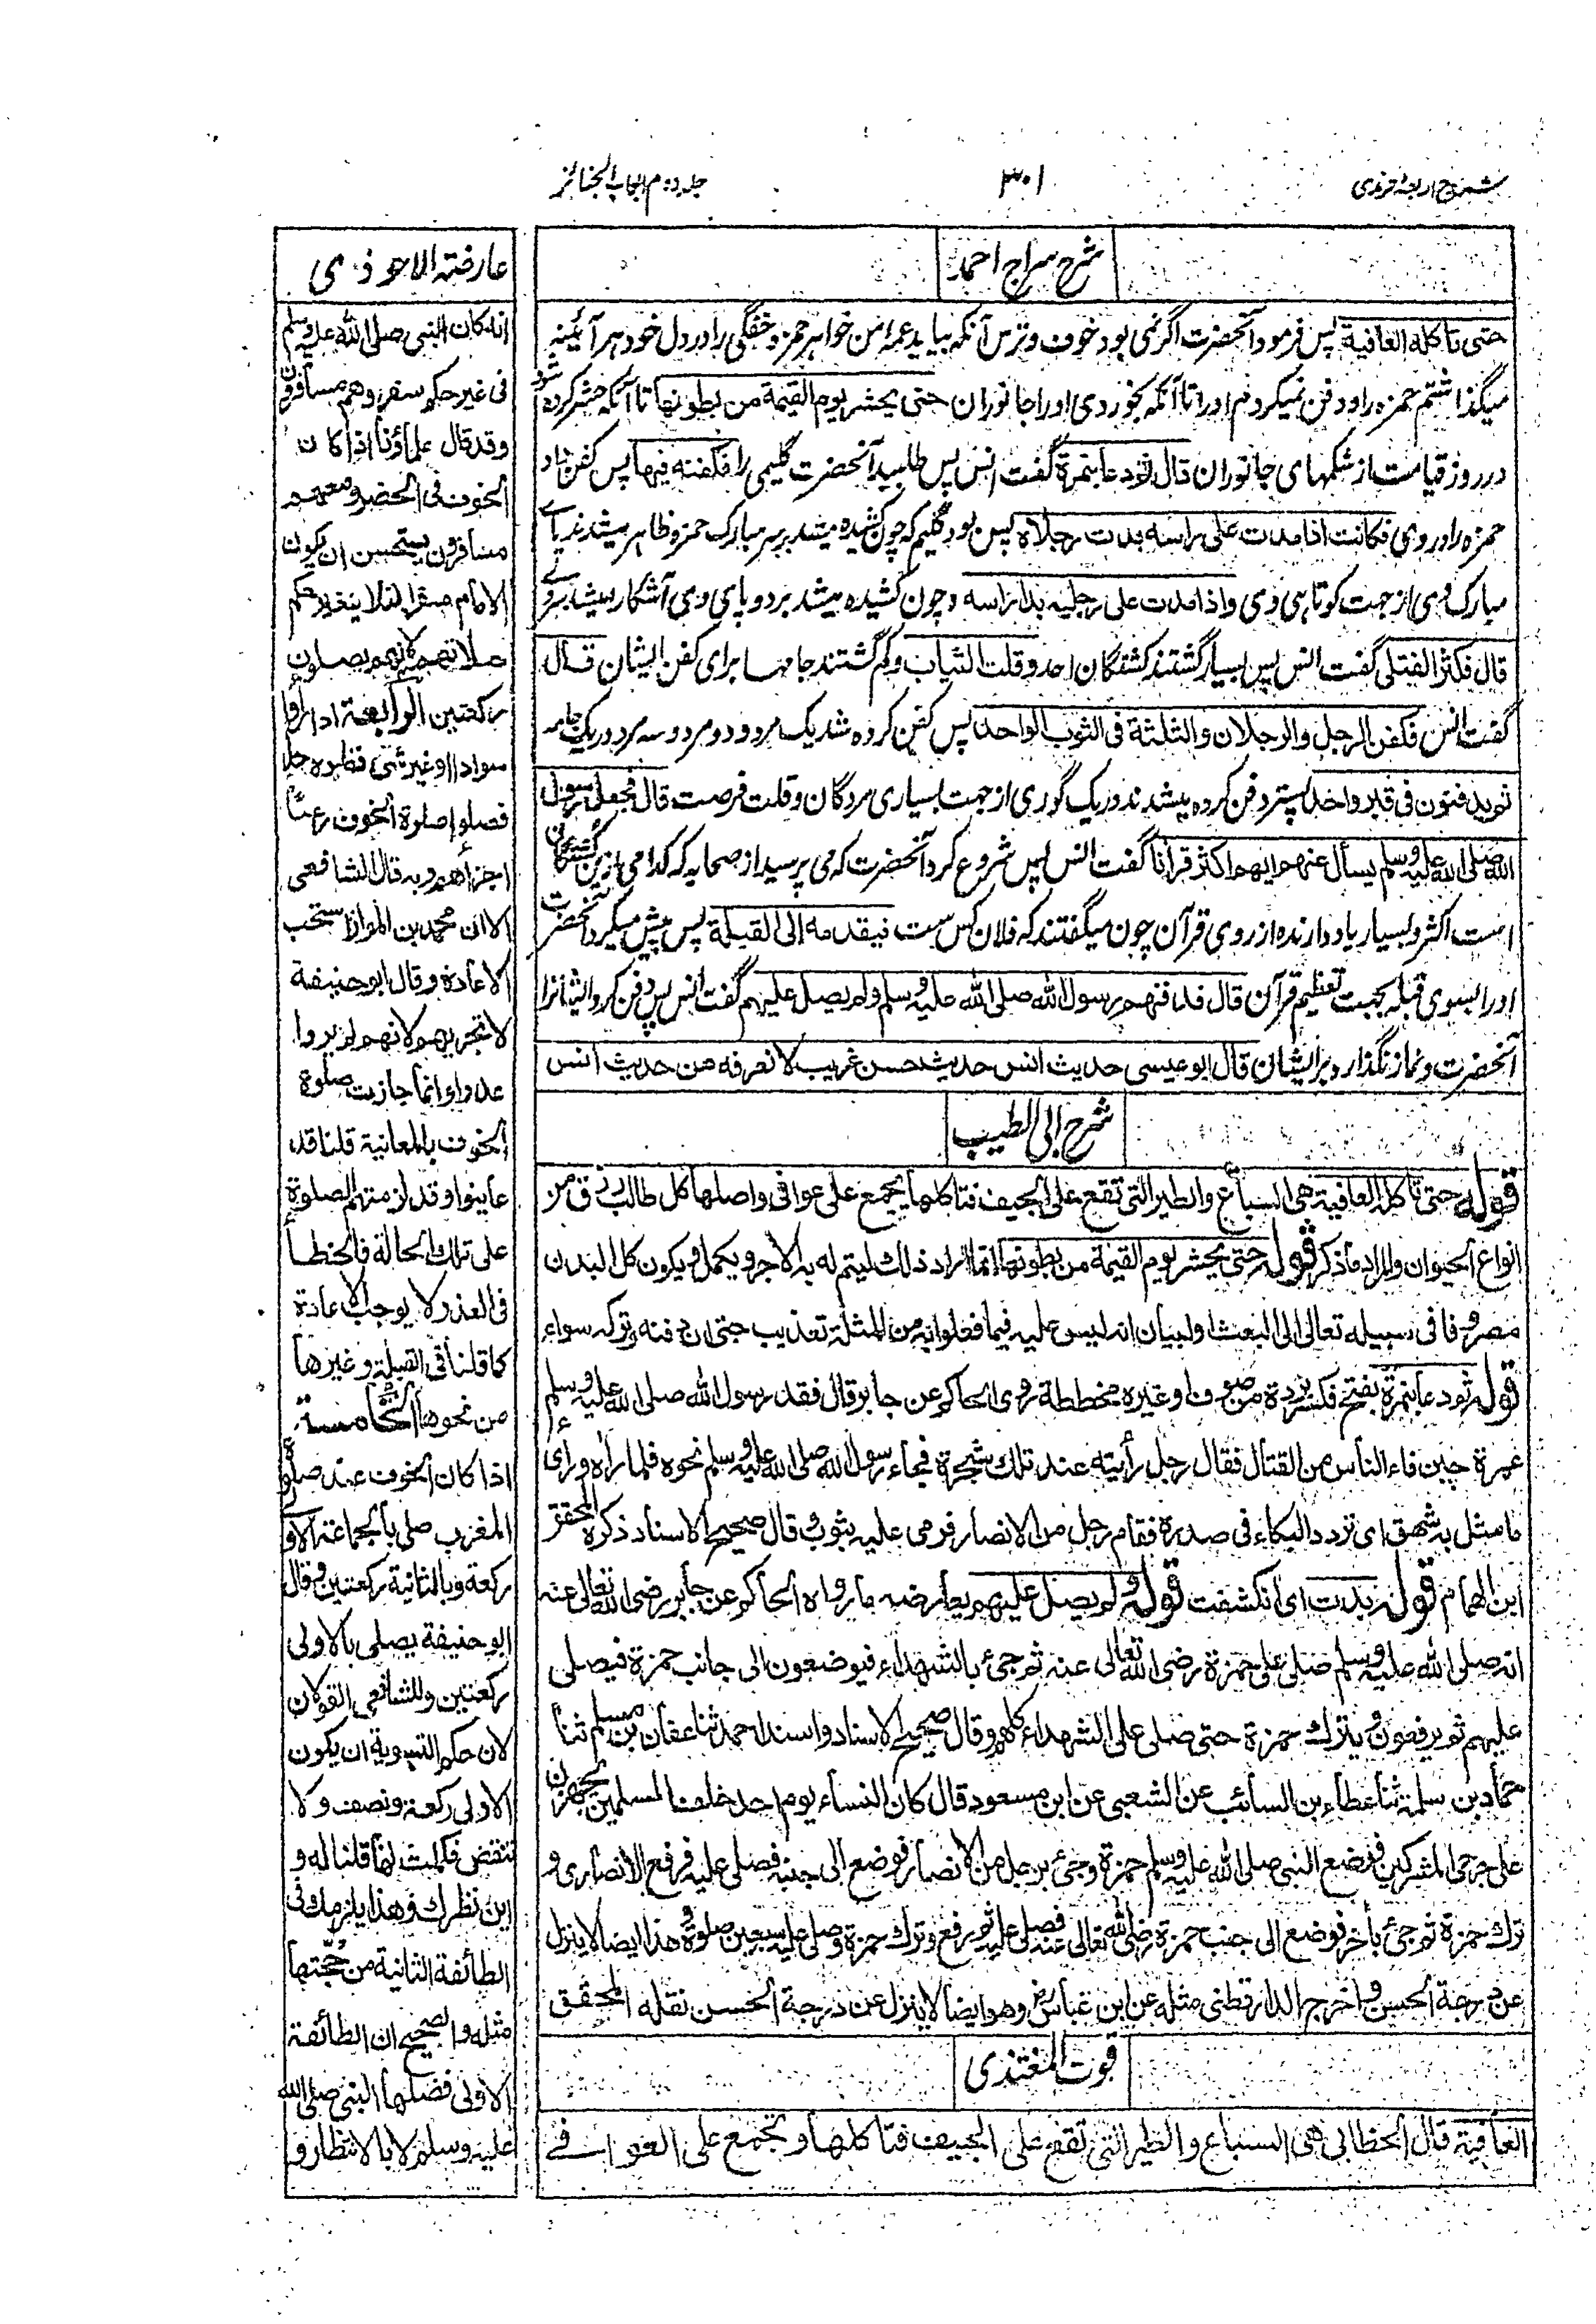 شروح اربعۂ ترمذی
۳۰۱
جلد دوم ابواب الجنائز
شرح سراج احمد
حتى تاكله العافية پس فرمود آنحضرت اگر نمی بود خوف و ترس آنكه بیابد عمه من خواهر حمزه خفگی را در دل خود هر آئینه
میگذاشتم حمزه را و دفن نمیكردم او را تا آنكه بخوردی او را جانوران حتى يحشر يوم القيمة من بطونها تا آنكه حشر كرده شود
در روز قیامت از شكمهای جانوران قال ثم دعا بنمرة گفت انس پس طلبید آنحضرت گلیمی را فكفنه فيها پس كفن داد
حمزه را در وی فكانت اذا مدت على راسه بدت رجلاه پس بود گلیم كه چون كشیده میشد بر سر مبارك حمزه ظاهر میشدند پای
مبارك وی از جهت كوتاهی وی واذا مدت على رجليه بدا راسه و چون كشیده میشد بر دو پای وی آشكار میشد سر وی
قال فكثر القتلى گفت انس پس بسیار گشتند كشتگان احد وقلت الثياب و كم گشتند جامها برای كفن ایشان قال
گفت انس فكفن الرجل والرجلان والثلثة فى الثوب الواحد پس كفن كرده شد یك مرد و دو مرد و سه مرد در یك جامه
ثم يدفنون فى قبر واحد پستر دفن كرده میشدند در یك گوری از جهت بسیاری مردگان و قلت فرصت قال فجعل رسول
الله صلى الله عليه وسلم يسأل عنهم ايهم اكثر قرأنا گفت انس پس شروع كرد آنحضرت كه می پرسید از صحابه كه كدامی ازین كشتگان
است اكثر و بسیار یاد دارنده از روی قرآن چون میگفتند كه فلان كس ست فيقدمه الى القبلة پس پیش میكرد آنحضرت
او را بسوی قبله بجهت تعظیم قرآن قال فدفنهم رسول الله صلى الله عليه وسلم ولم يصل عليهم گفت انس پس دفن كرد ایشانرا
آنحضرت و نماز نگذارد بر ایشان قال ابو عيسى حديث انس حديث حسن غريب لا نعرفه من حديث انس
شرح ابى الطيب
قوله حتى تاكله العافية هى السباع والطير التى تقع على الجيف فتاكلها يجمع على عوافى واصلها كل طالب رزق من
انواع الحيوان والمراد ما ذكر قوله حتى يحشر يوم القيمة من بطونها انما اراد ذلك ليتم له به الاجر ويكمل ويكون كل البدن
مصروفا فى سبيله تعالى الى البعث او لبيان انه ليس عليه فيما فعلوا به من المثلة تعذيب حتى ان دفنه وتركه سواء
قوله ثم دعا بنمرة بفتح فكسر بردة من صوف او غيره مخططة روى الحاكم عن جابر قال فقد رسول الله صلى الله عليه وسلم
حمزة حين فاء الناس من القتال فقال رجل رأيته عند تلك شجرة فجاء رسول الله صلى الله عليه وسلم نحوه فلما راه ورأى
ما مثل به شهق اى تردد البكاء فى صدره فقام رجل من الانصار فرمى عليه بثوب وقال صحيح الاسناد ذكره المحقق
ابن الهمام قوله بدت اى انكشفت قوله ولم يصل عليهم يعارضه ما رواه الحاكم عن جابر رضى الله تعالى عنه
انه صلى الله عليه وسلم صلى على حمزة رضى الله تعالى عنه ثم جئ بالشهداء فيوضعون الى جانب حمزة فيصلى
عليهم ثم يرفعون ويترك حمزة حتى صلى على الشهداء كلهم وقال صحيح الاسناد واسند احمد ثنا عفان بن مسلم ثنا
حماد بن سلمة ثنا عطاء بن السائب عن الشعبى عن ابن مسعود قال كان النساء يوم احد خلف المسلمين يجهزن
على جرحى المشركين فوضع النبى صلى الله عليه وسلم حمزة وجئ برجل من الانصار فوضع الى جنبه فصلى عليه فرفع الانصارى و
ترك حمزة ثم جئ بأخر فوضع الى جنب حمزة رضى الله تعالى عنه فصلى عليه ثم رفع وترك حمزة وصلى عليه سبعين صلوة وهذا ايضا لا ينزل
عن درجة الحسن واخرج الدارقطنى مثله عن ابن عباس رض وهو ايضا لا ينزل عن درجة الحسن نقله المحقق
قوت المغتذى
العافية قال الخطابى هى السباع والطير التى تقع على الجيف فتاكلها وتجمع على العوافى
عارضة الاحوذى
انه كان النبى صلى الله عليه وسلم
فى غير حكم سفر وهم مسافرون
وقد قال علماؤنا اذا كان
الخوف فى الحضر ومعهم
مسافرون يستحسن ان يكون
الامام سفرا لئلا يتغير حكم
صلاتهم لانهم يصلون
ركعتين الرابعة اذا راوا
سوادا او غير شئ فظنوه
فصلوا صلوة الخوف
اجزأهم وبه قال الشافعى
الا ان محمد بن المواز استحب
الاعادة وقال ابو حنيفة
لا تجزيهم لانهم لم يروا
عدوا وانما جازت صلوة
الخوف بالمعاينة قلنا قد
عاينوا وقد لزمتهم الصلوة
على تلك الحالة فالخطأ
فى العذر لا يوجب الاعادة
كما قلنا فى القبلة وغيرها
من نحوها الخامسة
اذا كان الخوف عند صلوة
المغرب صلى بالجماعة الاولى
ركعة وبالثانية ركعتين وقال
ابو حنيفة يصلى بالاولى
ركعتين وللشافعى القولان
لان حكم التسوية ان يكون
الاولى ركعة ونصف ولا
تنتقض فكملت لها قلنا له و
اين نظرك وهذا يلزمك فى
الطائفة الثانية من حجتها
مثله والصحيح ان الطائفة
الاولى فضلها النبى صلى الله
عليه وسلم لا بالانتظار و